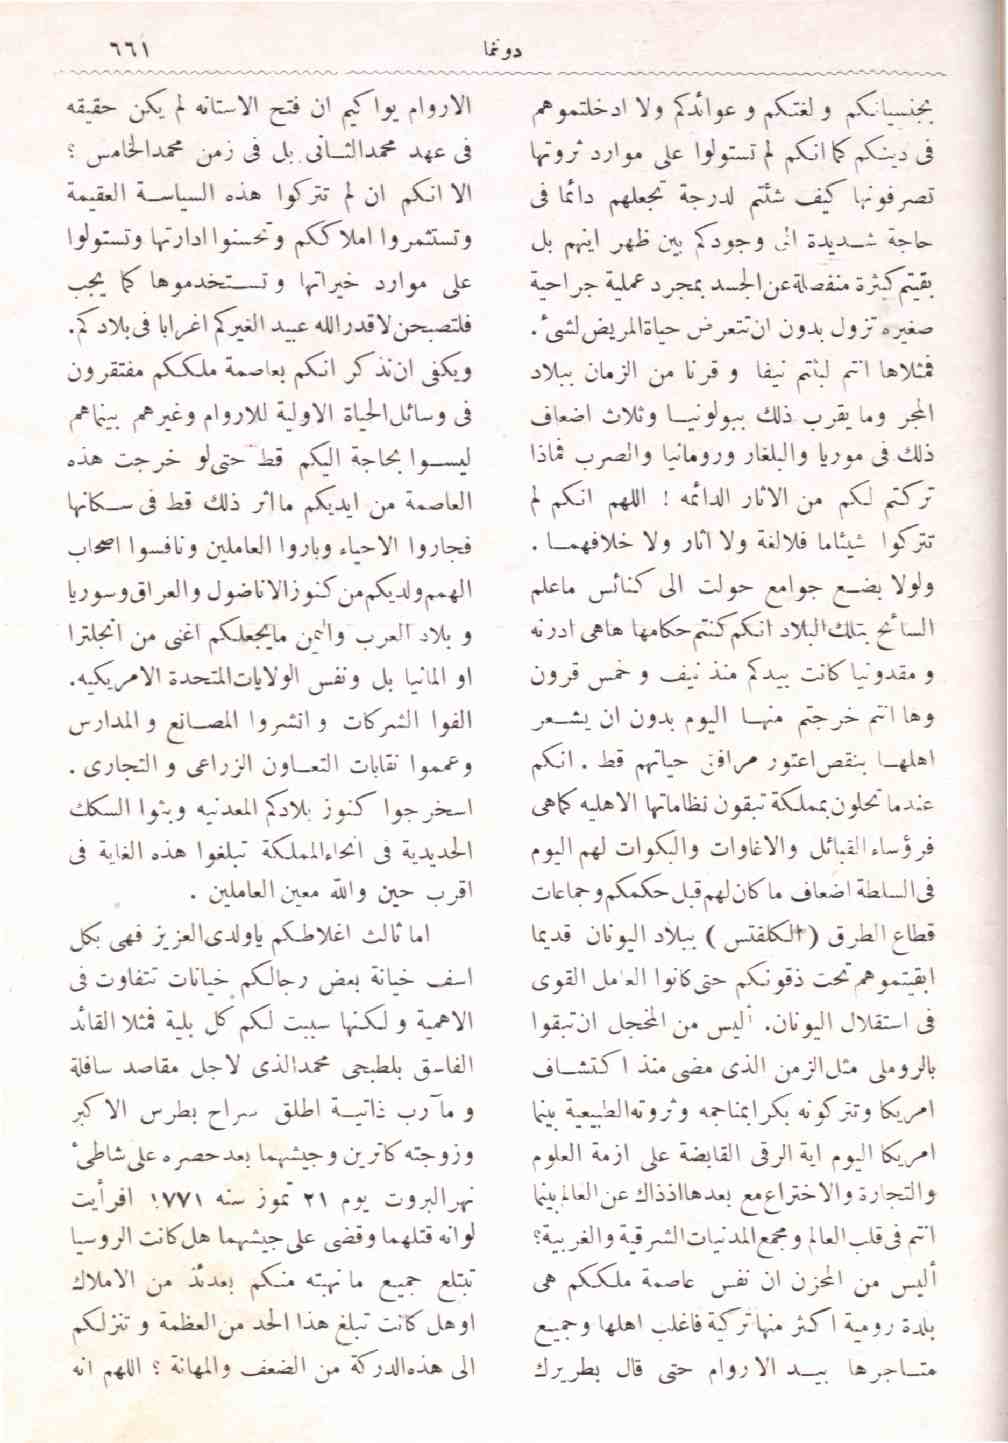 دونما
٦٦١
بجنسياتكم ولغتكم وعوائدكم ولا ادخلتموهم
فى دينكم كما انكم لم تستولوا على موارد ثروتها
تصرفونها كيف شئتم لدرجة تجعلهم دائما فى
حاجة شـديدة الى وجودكم بين ظهر اينهم بل
بقيتم كبثرة منفصلة عن الجسد بمجرد عملية جراحية
صغيره تزول بدون ان تتعرض حياة المريض لشئ.
فمثلاها انتم لبثتم نيفا و قرنا من الزمان ببلاد
المجر وما يقرب ذلك ببولونيــا وثلاث اضعاف
ذلك فى موريا والبلغار ورومانيا والصرب فماذا
تركتم لكم من الاثار الدائمه ! اللهم انكم لم
تتركوا شيئاما فلالغة ولا اثار ولا خلافهمـا .
ولولا بضـع جوامع حولت الى كنائس ماعلم
السائح بتلك البلاد انكم كنتم حكامها هاهى ادرنه
و مقدونيا كانت بيدكم منذ نيف و خمس قرون
وها انتم خرجتم منهـا اليوم بدون ان يشـعر
اهلهـا بنقص اعتور مرافق حياتهم قط . انكم
عندما تحلون بمملكة تبقون نظاماتها الاهليه كماهى
فرؤساء القبائل والاغاوات والبكوات لهم اليوم
فى السلطة اضعاف ما كان لهم قبل حكمكم وجماعات
قطاع الطرق (الكلفتس) ببلاد اليونان قديما
ابقيتموهم تحت ذقونكم حتى كانوا العامل القوى
فى استقلال اليونان. أليس من المخجل ان تبقوا
بالروملى مثل الزمن الذى مضى منذ اكتشـاف
امريكا وتتركونه بكرا بمناجمه وثروته الطبيعية بينما
امريكا اليوم اية الرقى القابضة على ازمة العلوم
والتجارة والاختراع مع بعدها اذذاك عن العالم بينما
انتم فى قلب العالم ومجمع المدنيات الشرقية والغربية؟
أليس من المحزن ان نفس عاصمة ملككم هى
بلدة رومية اكثر منها تركية فاغلب اهلها وجميع
متـاجرها بيـد الاروام حتى قال بطريرك
الاروام يواكيم ان فتح الاستانه لم يكن حقيقه
فى عهد محمد الثـانى بل فى زمن محمد الخامس ؟
الا انكم ان لم تتركوا هذه السياسـة العقيمة
وتستثمروا املاككم وتحسنوا ادارتها وتستولوا
على موارد خيراتها وتسـتخدموها كما يجب
فلتصبحن لاقدر الله عبيد الغيركم اغرابا فى بلادكم.
ويكفى ان نذكر انكم بعاصمة ملككم مفتقرون
فى وسائل الحياة الاولية للاروام وغيرهم بينماهم
ليسـوا بحاجة اليكم قط حتى لو خرجت هذه
العاصمة من ايديكم ما اثر ذلك قط فى سـكانها
فجاروا الاحياء وباروا العاملين ونافسوا اصحاب
الهمم ولديكم من كنوز الاناضول والعراق وسوريا
و بلاد العرب واليمن ما يجعلكم اغنى من انجلترا
او المانيا بل ونفس الولايات المتحدة الامريكيه.
الفوا الشركات وانشروا المصـانع والمدارس
وعمموا نقابات التعـاون الزراعى و التجارى .
اسخرجوا كنوز بلادكم المعدنيه وبثوا السكك
الحديدية فى انحاء المملكة تبلغوا هذه الغاية فى
اقرب حين والله معين العاملين .
اما ثالث اغلاطكم ياولدى العزيز فهى بكل
اسف خيانة بعض رجالكم خيانات تتفاوت فى
الاهمية ولكنها سببت لكم كل بلية فمثلا القائد
الفاسق بلطبجى محمد الذى لاجل مقاصد سافلة
و مآرب ذاتيـة اطلق سراح بطرس الاكبر
وزوجته كاترين وجيشهما بعد حصره على شاطئ
نهر البروت يوم ٢١ تموز سنه ١٧٧١ افرأيت
لوانه قتلهما وقضى على جيشهما هل كانت الروسيا
تبتلع جميع مانهبته منكم بعدئذ من الاملاك
اوهل كانت تبلغ هذا الحد من العظمة و تنزلكم
الى هذه الدركة من الضعف والمهانة ؟ اللهم انه